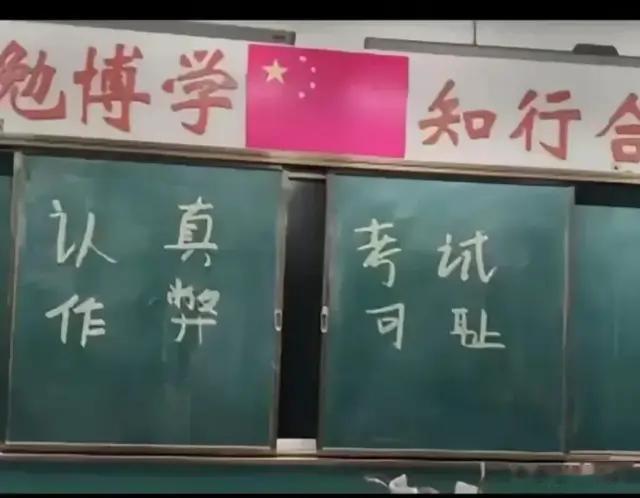 勉博学 知行合
认真 考试
作弊 可耻